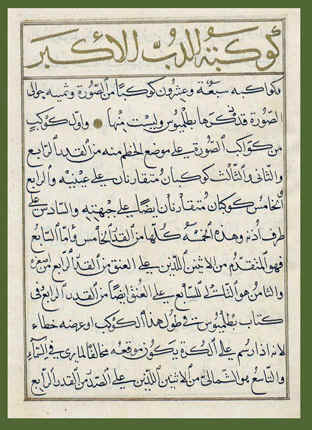 كوكبة الدب الأكبر
وكواكبه سبعة وعشرون كوكبا من الصورة وثمنيه حوالي
الصورة قد ذكرها بطلميوس وليست منها واول كوكب
من كواكب الصورة على موضع الخطم منه من القدر الرابع
والثاني والثالث كوكبان متقاربان على عينيه والرابع
الخامس كوكبان متقاربان ايضا على جبهته والسادس على
طرف اذنه وهذه الخمسه كلها من القدر الخامس واما السابع
فهو المتقدم من الاثنين اللذين على العنق من القدر الرابع
والثامن هو التالي للسابع على العنق ايضا من القدر الرابع وفي
كتاب بطلميوس في طول هذا الكوكب او عرضه خطاء
لانه اذا رسم على الكرة يكون موقعه مخالفا لما يرى في السماء
والتاسع هو الشمالي من الاثنين اللذين على الصدر من القدر الرابع